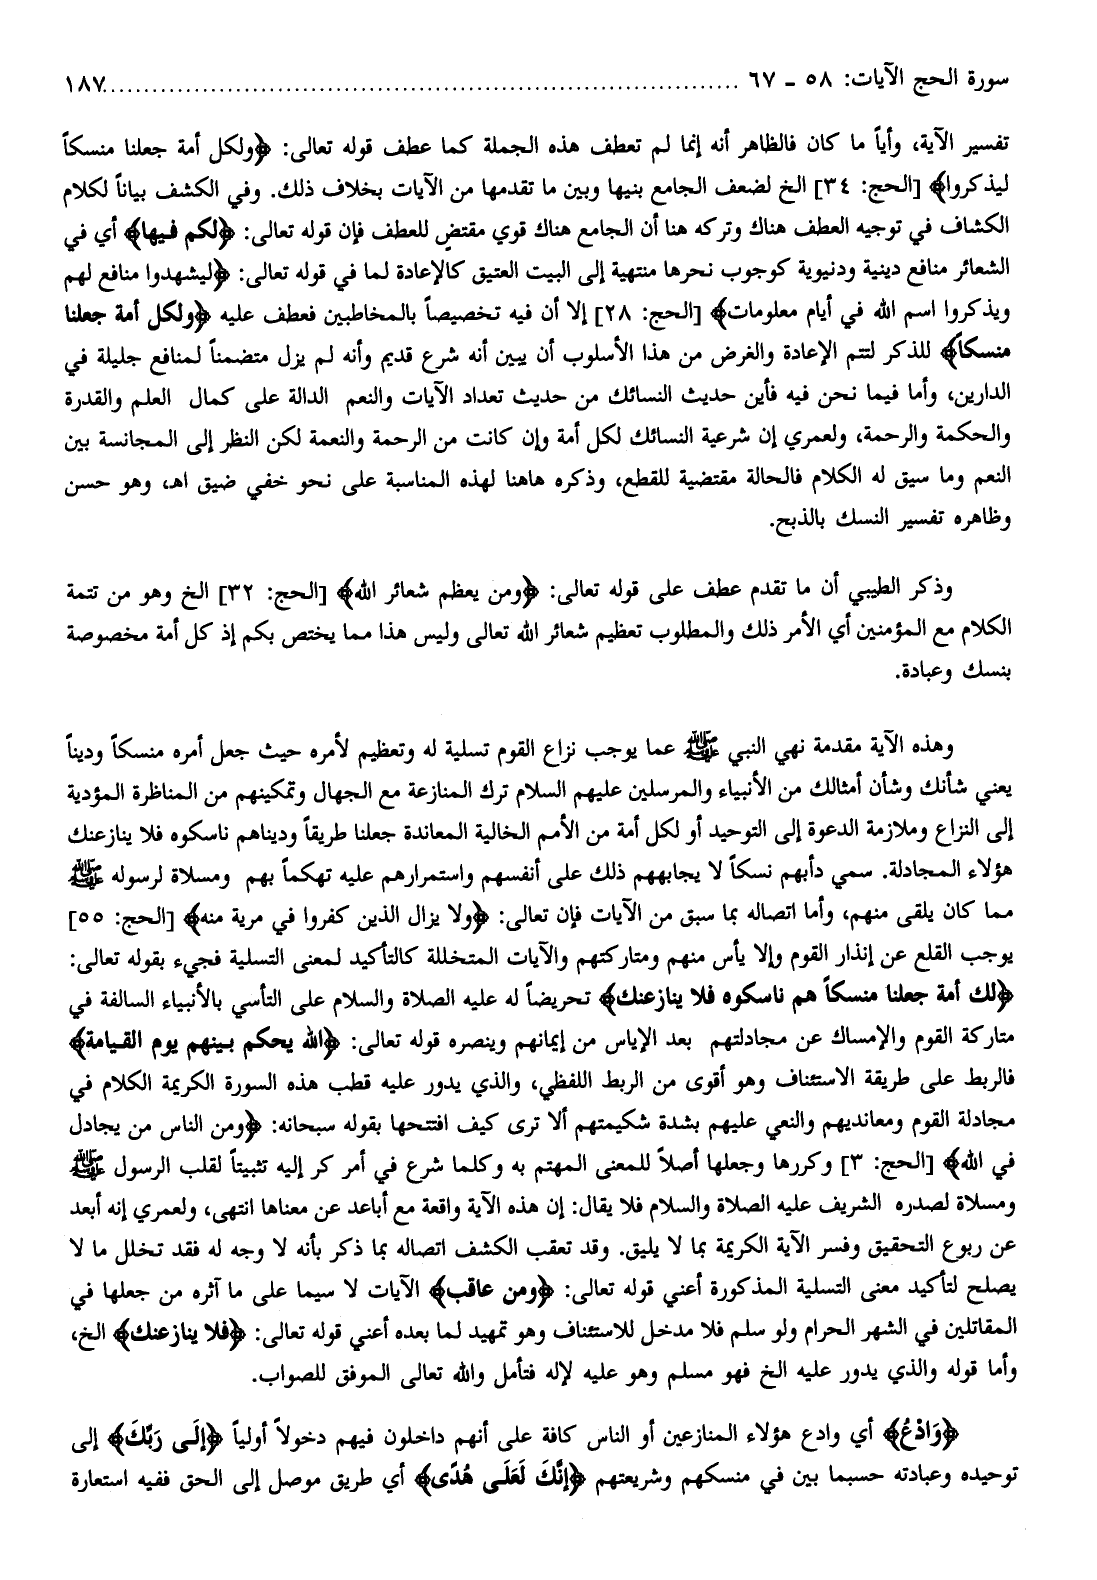 سورة الحج الآيات: ٥٨ ـ ٦٧ ........................................................................ ١٨٧
تفسير الآية، وأياً ما كان فالظاهر أنه إنما لم تعطف هذه الجملة كما عطف قوله تعالى: ﴿ولكل أمة جعلنا منسكاً
ليذكروا﴾ [الحج: ٣٤] الخ لضعف الجامع بنيها وبين ما تقدمها من الآيات بخلاف ذلك. وفي الكشف بياناً لكلام
الكشاف في توجيه العطف هناك وتركه هنا أن الجامع هناك قوي مقتضٍ للعطف فإن قوله تعالى: ﴿لكم فيها﴾ أي في
الشعائر منافع دينية ودنيوية كوجوب نحرها منتهية إلى البيت العتيق كالإعادة لما في قوله تعالى: ﴿ليشهدوا منافع لهم
ويذكروا اسم الله في أيام معلومات﴾ [الحج: ٢٨] إلا أن فيه تخصيصاً بالمخاطبين فعطف عليه ﴿ولكل أمة جعلنا
منسكاً﴾ للذكر لتتم الإعادة والغرض من هذا الأسلوب أن يبين أنه شرع قديم وأنه لم يزل متضمناً لمنافع جليلة في
الدارين، وأما فيما نحن فيه فأين حديث النسائك من حديث تعداد الآيات والنعم الدالة على كمال العلم والقدرة
والحكمة والرحمة، ولعمري إن شرعية النسائك لكل أمة وإن كانت من الرحمة والنعمة لكن النظر إلى المجانسة بين
النعم وما سيق له الكلام فالحالة مقتضية للقطع، وذكره هاهنا لهذه المناسبة على نحو خفي ضيق اهـ، وهو حسن
وظاهره تفسير النسك بالذبح.
وذكر الطيبي أن ما تقدم عطف على قوله تعالى: ﴿ومن يعظم شعائر الله﴾ [الحج: ٣٢] الخ وهو من تتمة
الكلام مع المؤمنين أي الأمر ذلك والمطلوب تعظيم شعائر الله تعالى وليس هذا مما يختص بكم إذ كل أمة مخصوصة
بنسك وعبادة.
وهذه الآية مقدمة نهي النبي ﷺ عما يوجب نزاع القوم تسلية له وتعظيم لأمره حيث جعل أمره منسكاً وديناً
يعني شأنك وشأن أمثالك من الأنبياء والمرسلين عليهم السلام ترك المنازعة مع الجهال وتمكينهم من المناظرة المؤدية
إلى النزاع وملازمة الدعوة إلى التوحيد أو لكل أمة من الأمم الخالية المعاندة جعلنا طريقاً وديناهم ناسكوه فلا ينازعنك
هؤلاء المجادلة. سمي دأبهم نسكاً لا يجابههم ذلك على أنفسهم واستمرارهم عليه تهكماً بهم ومسلاة لرسوله ﷺ
مما كان يلقى منهم، وأما اتصاله بما سبق من الآيات فإن تعالى: ﴿ولا يزال الذين كفروا في مرية منه﴾ [الحج: ٥٥]
يوجب القلع عن إنذار القوم وإلا يأس منهم ومتاركتهم والآيات المتخللة كالتأكيد لمعنى التسلية فجيء بقوله تعالى:
﴿لك أمة جعلنا منسكاً هم ناسكوه فلا ينازعنك﴾ تحريضاً له عليه الصلاة والسلام على التأسي بالأنبياء السالفة في
متاركة القوم والإمساك عن مجادلتهم بعد الإياس من إيمانهم وينصره قوله تعالى: ﴿الله يحكم بينهم يوم القيامة﴾
فالربط على طريقة الاستئناف وهو أقوى من الربط اللفظي، والذي يدور عليه قطب هذه السورة الكريمة الكلام في
مجادلة القوم ومعانديهم والنعي عليهم بشدة شكيمتهم ألا ترى كيف افتتحها بقوله سبحانه: ﴿ومن الناس من يجادل
في الله﴾ [الحج: ٣] وكررها وجعلها أصلاً للمعنى المهتم به وكلما شرع في أمر كر إليه تثبيتاً لقلب الرسول ﷺ
ومسلاة لصدره الشريف عليه الصلاة والسلام فلا يقال: إن هذه الآية واقعة مع أباعد عن معناها انتهى، ولعمري إنه أبعد
عن ربوع التحقيق وفسر الآية الكريمة بما لا يليق. وقد تعقب الكشف اتصاله بما ذكر بأنه لا وجه له فقد تخلل ما لا
يصلح لتأكيد معنى التسلية المذكورة أعني قوله تعالى: ﴿ومن عاقب﴾ الآيات لا سيما على ما آثره من جعلها في
المقاتلين في الشهر الحرام ولو سلم فلا مدخل للاستئناف وهو تمهيد لما بعده أعني قوله تعالى: ﴿فلا ينازعنك﴾ الخ،
وأما قوله والذي يدور عليه الخ فهو مسلم وهو عليه لإله فتأمل والله تعالى الموفق للصواب.
﴿وَادْعُ﴾ أي وادع هؤلاء المنازعين أو الناس كافة على أنهم داخلون فيهم دخولاً أولياً ﴿إلَى رَبِّكَ﴾ إلى
توحيده وعبادته حسبما بين في منسكهم وشريعتهم ﴿إنَّكَ لَعَلَى هُدًى﴾ أي طريق موصل إلى الحق ففيه استعارة